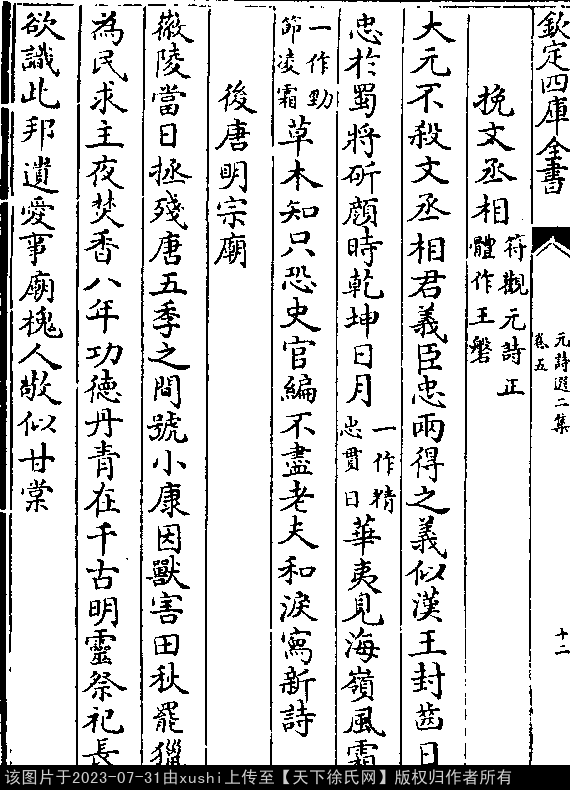 欽定四庫全書
元詩選二集
卷五
十二
挽文丞相符觀元詩正
體作王磐
大元不殺文丞相君義臣忠兩得之義似漢王封齒日
忠於蜀將斫顔時乾坤日月一作精
忠貫日華夷見海嶺風霜
一作勁
節凌霜草木知只恐史官編不盡老夫和淚寫新詩
後唐明宗廟
徽陵當日拯殘唐五季之間號小康因獸害田秋罷獵
為民求主夜焚香八年功徳丹青在千古明靈祭祀長
欲識此邦遺愛事廟槐人敬似甘棠
该图片于2023-07-31由xushi上传至【天下徐氏网】版权归作者所有